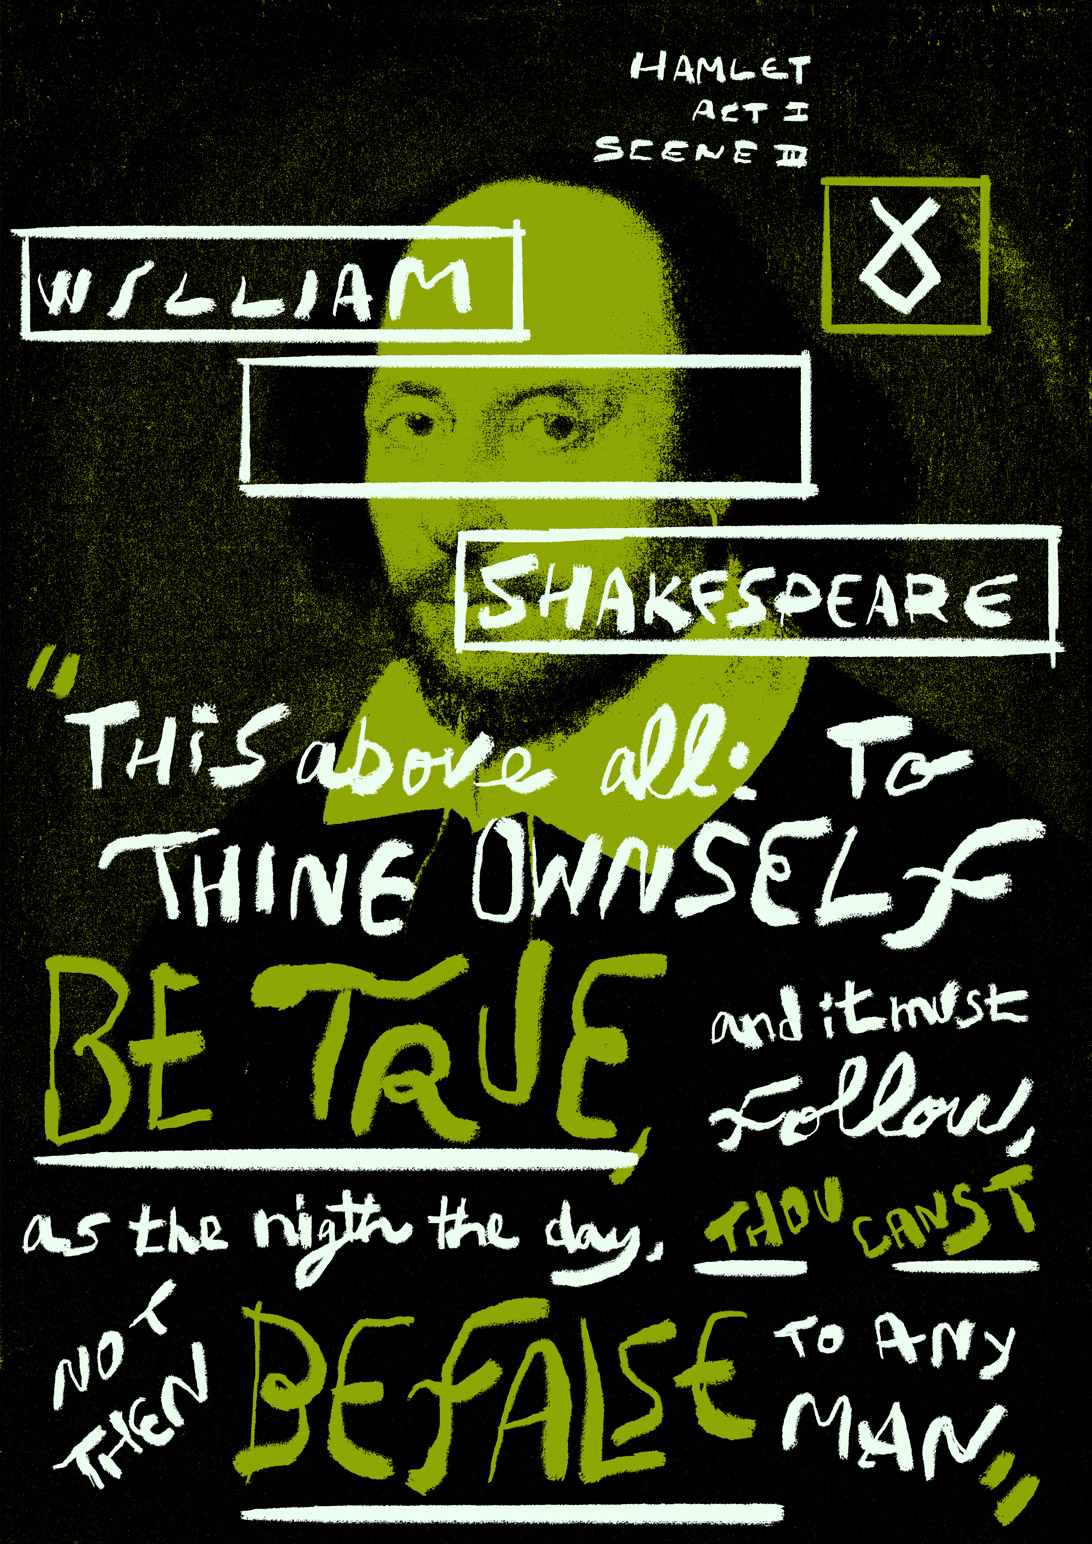 HAMLET
ACT I
SCENE III
WILLIAM
SHAKESPEARE
"THiS above all: To
THINE OWNSELF
BE TRUE,
and it must
Follow,
as the nigth the day,
THOU CANST
NOT
THEN
BE FALSE
TO ANY
MAN"